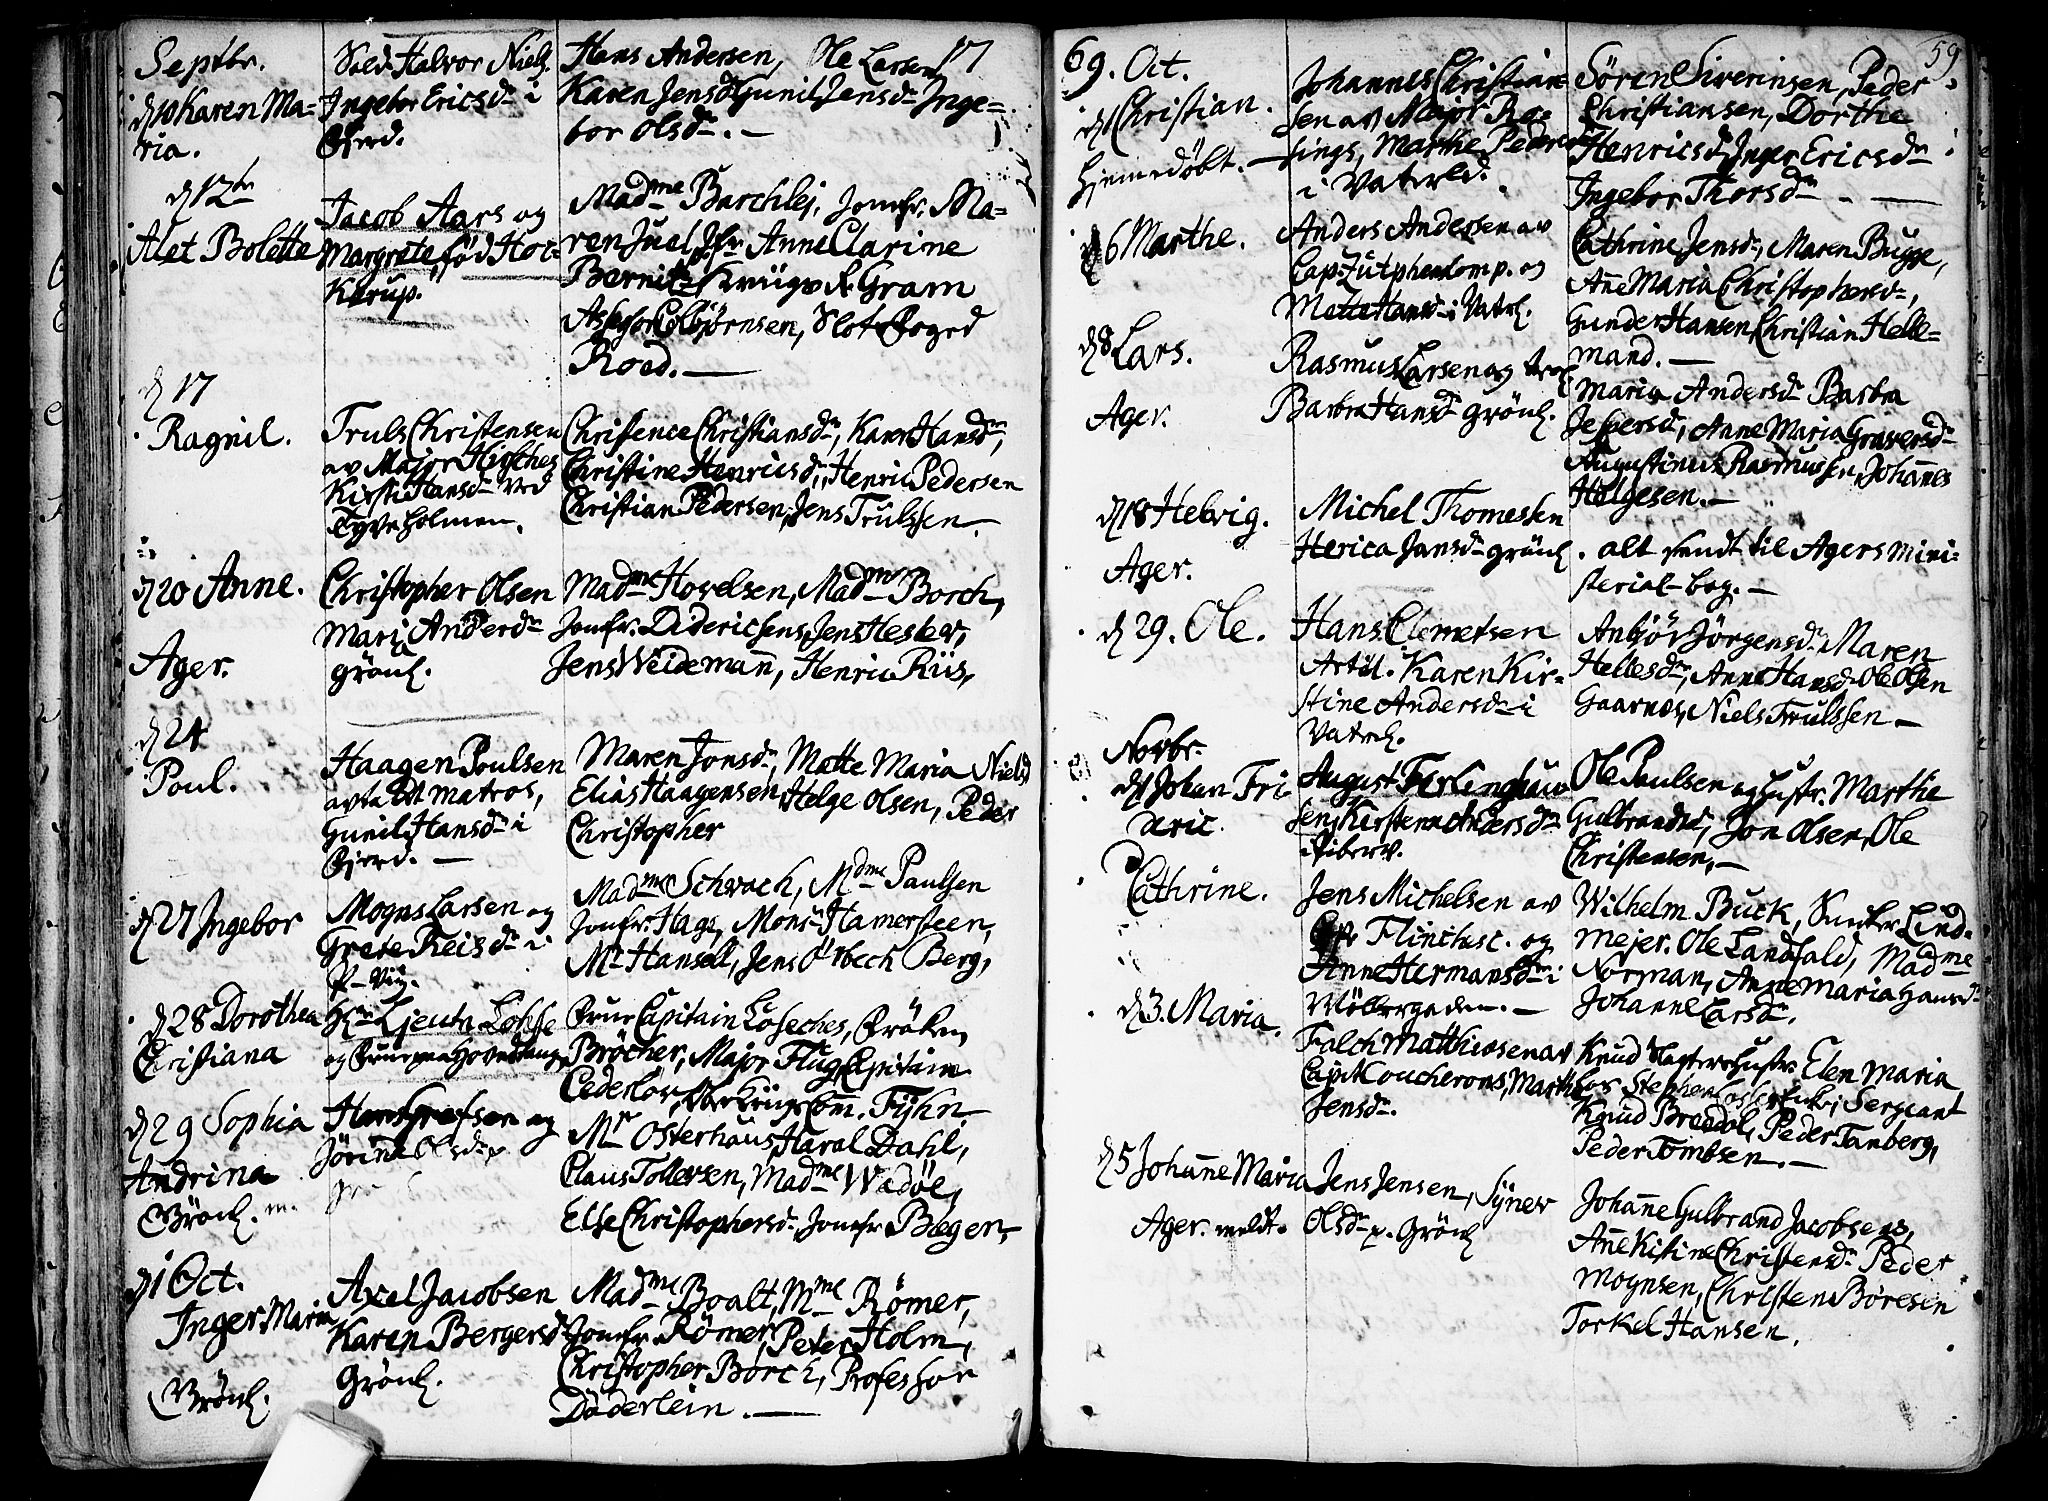 Septbr.
d 10 Karen Ma-
ria.
Sold. Halvor Niels.
Ingebor Ericsdr i
Hans Andersen, Ole Larsen
Karen Jensd Gunil Jensdr Inge-
bor Olsdr. —
17
d 12te
Alet Bolette
Jacob Aars og
Margrete, fød Hof-
Karup.
Madme Barchlej, Jomfr. Ma-
ren Juel, Jfr Anne Clarine
Gram
Colbjørnsen, Slots Foged
Roed. —
d 17
Ragnil.
Truls Christensen
av Major Hirsches
Kirsti Hansdr ved
Tyveholmen.
Christence Christiansdr, Karen Hansdr,
Christine Henricsdr, Henric Pedersen
Christian Pedersen, Jens Trulssen —
d 20 Anne.
Ager.
Christopher Olsen
Mari Andersdr
Grönl.
Madme Hovelsen, Madme Borch,
Jomfr. Diderichsens, Jens Hesler,
Jens Weidemann, Henric Riis,
d 24
Poul.
Haagen Poulsen
matros,
Gunil Hansdr i
Fjerd. —
Maren Jonsdr, Mette Maria Nielsd
Elias Haagensen, Helge Olsen, Peder
Christopher
d 27 Ingebor
Mogns Larsen og
Grete Reisdr i
P-Vig.
Madme Schwach, Mdme Paulsen
Jomfr. Hage, Monsr Hamersteen,
Mr Hansell, Jens Örbech Berg,
d 28 Dorothea
Christiana
Hr Ljeutn. Lohse
og Frue
Frue Capitain Loseches, Fröken
Bröcher, Major Flug, Capitain
Comm. Fyhn
d 29 Sophia
Andrina
Grönl.
og
Jörine Olsdr
Mr Osterhaus, Haral Dahl,
Claus Tollersen, Madme Wadöe,
Else Christophersdr Jomfr Bøgen,
d 1 Oct.
Inger Maria
Grönl.
Axel Jacobsen
Karen Bergersd
Grönl.
Madme Boalt, Mme Römer,
Jomfr. Römer, Peter Holm,
Christopher Borch, Professor
Döderlein. —
69. Oct.
59
d 1 Christian.
Hjemedöbt. —
Johannes Christian-
sen av Major Ro-
sings, Marthe Peders
i Vaterld.
Sören Siverinsen, Peder
Christiansen, Dorthe
Henricsd, Inger Ericsdr
Ingebor Thorsdr. —
d 6 Marthe.
Anders Andersen av
Cap. Zutphen Comp. og
Mette Hansdr i Vatrl.
Cathrine Jensdr, Maren Bugge,
Anne Maria Christophersdr,
Gunder Hansen, Christian Helle-
mand. —
d 8 Lars.
Ager.
Rasmus Larsen og
Barbra Hansdr Grönl.
Maria Andersdr Barbra
Jespersd, Anne Maria Graversdr
Augustinus Rasmussen, Johannes
Helgesen. —
d 18 Helvig.
Ager.
Michel Thomessen
Herica Jansdr Grönl
. alt sendt til Agers mini-
sterial-bog. —
d 29. Ole.
Hans Clemetsen
Artil. Karen Kir-
stine Andersdr i
Vatrl.
Anbjör Jörgensdr Maren
Hellesdr, Anne Hansd Ole Olsen
Gaarnæs, Niels Trulssen —
Novbr.
d 1 Johan Fri
deric.
August
sen, Kirsten Andersdr
i Piberv.
Ole Paulsen og Hustr. Marthe
Gulbrandsd, Jon Olsen, Ole
Christensen. —
Cathrine.
Jens Michelsen av
og
Anne Hermansdr i
Möllergaden. —
Wilhelm Buck, Snicker Lind-
mejer. Ole Landfald, Madme
Norman, Anne Maria Hansdr
Johanne Larsdr.
d 3. Maria.
Falch Matthiosen av
Capit. Coucherons, Marthe
Jensdr.
Knud Slagters Hustr. Elen Maria
Sergeant
Knud Bredal, Peder Tanberg,
Peder Tombsen. —
d 5 Johanne Maria
Ager. meldt.
Jens Jensen, Synev
Olsdr p. Grönl
Johanne Gulbrand Jacobsens,
Anne Kistine Christensdr Peder
Mognsen, Christen Böresen
Torkel Hansen.